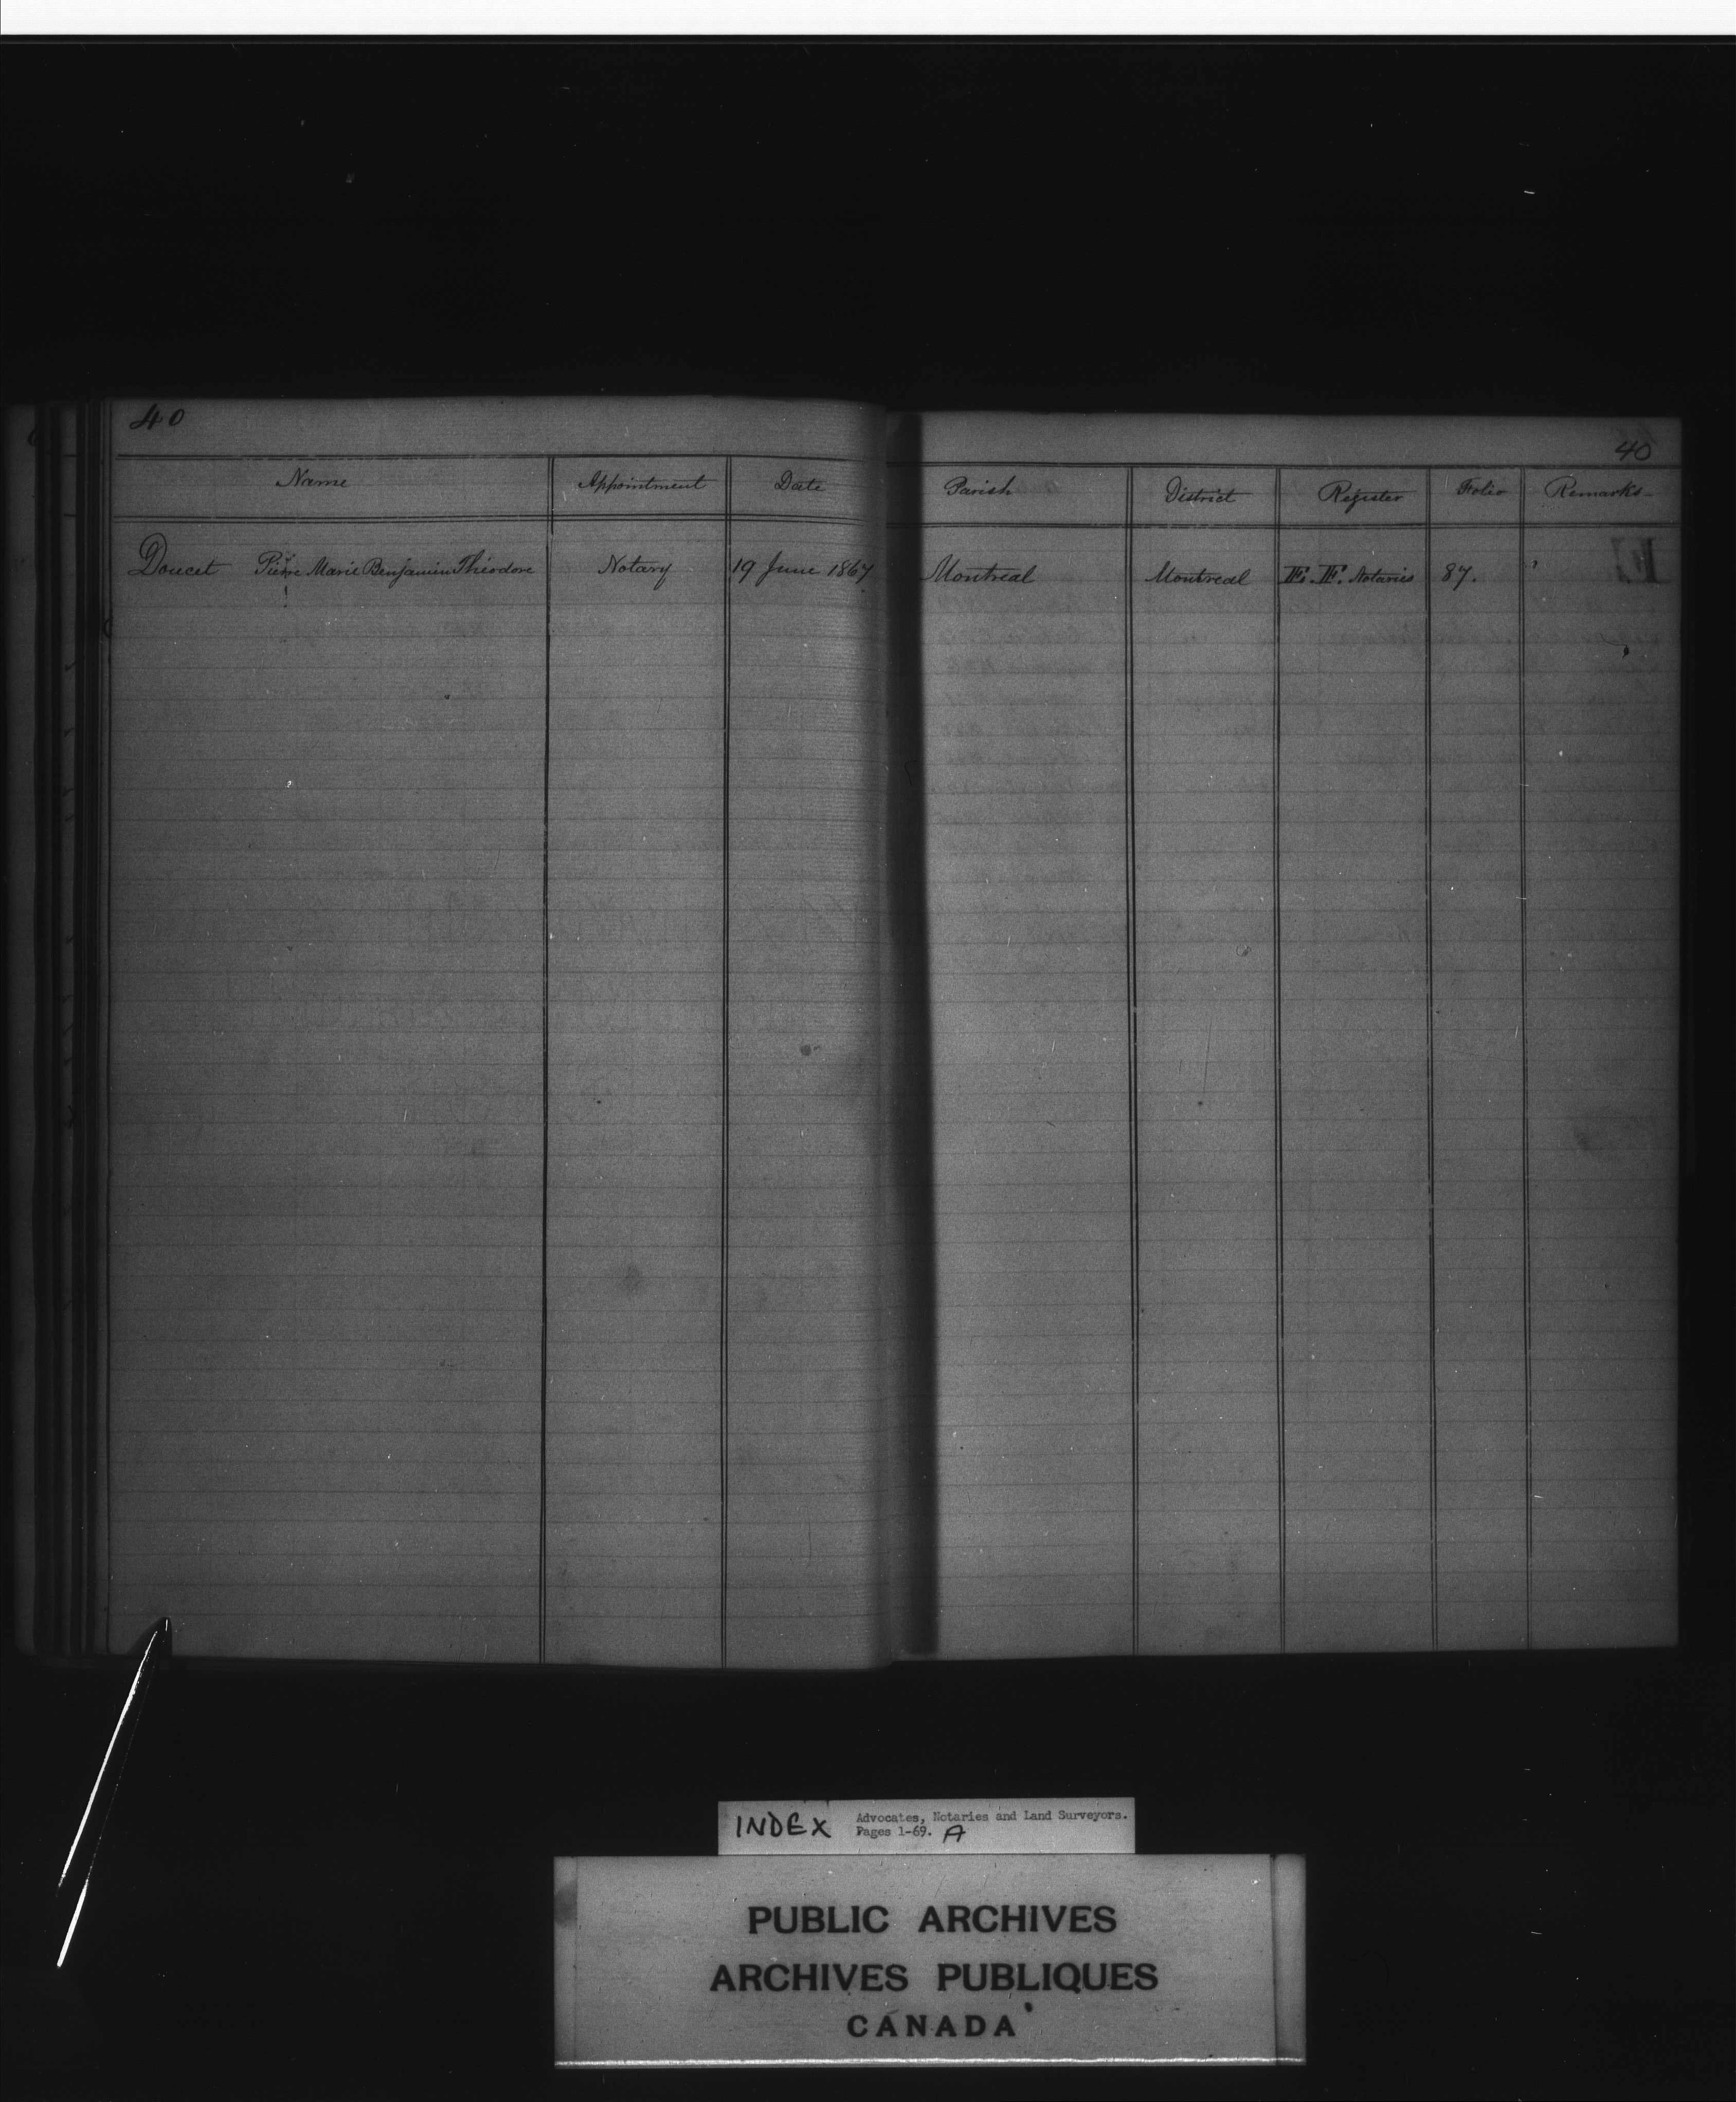 40
40
Name Appointment Date Parish District Register Folio Remarks
Doucet Pierre Marie Benjamin Théodore Notary 19 June 1867 Montreal Montreal F. F. Notaries 87.
INDEX Advocates, Notaries and Land Surveyors.
Pages 1-69. A
PUBLIC ARCHIVES
ARCHIVES PUBLIQUES
CANADA